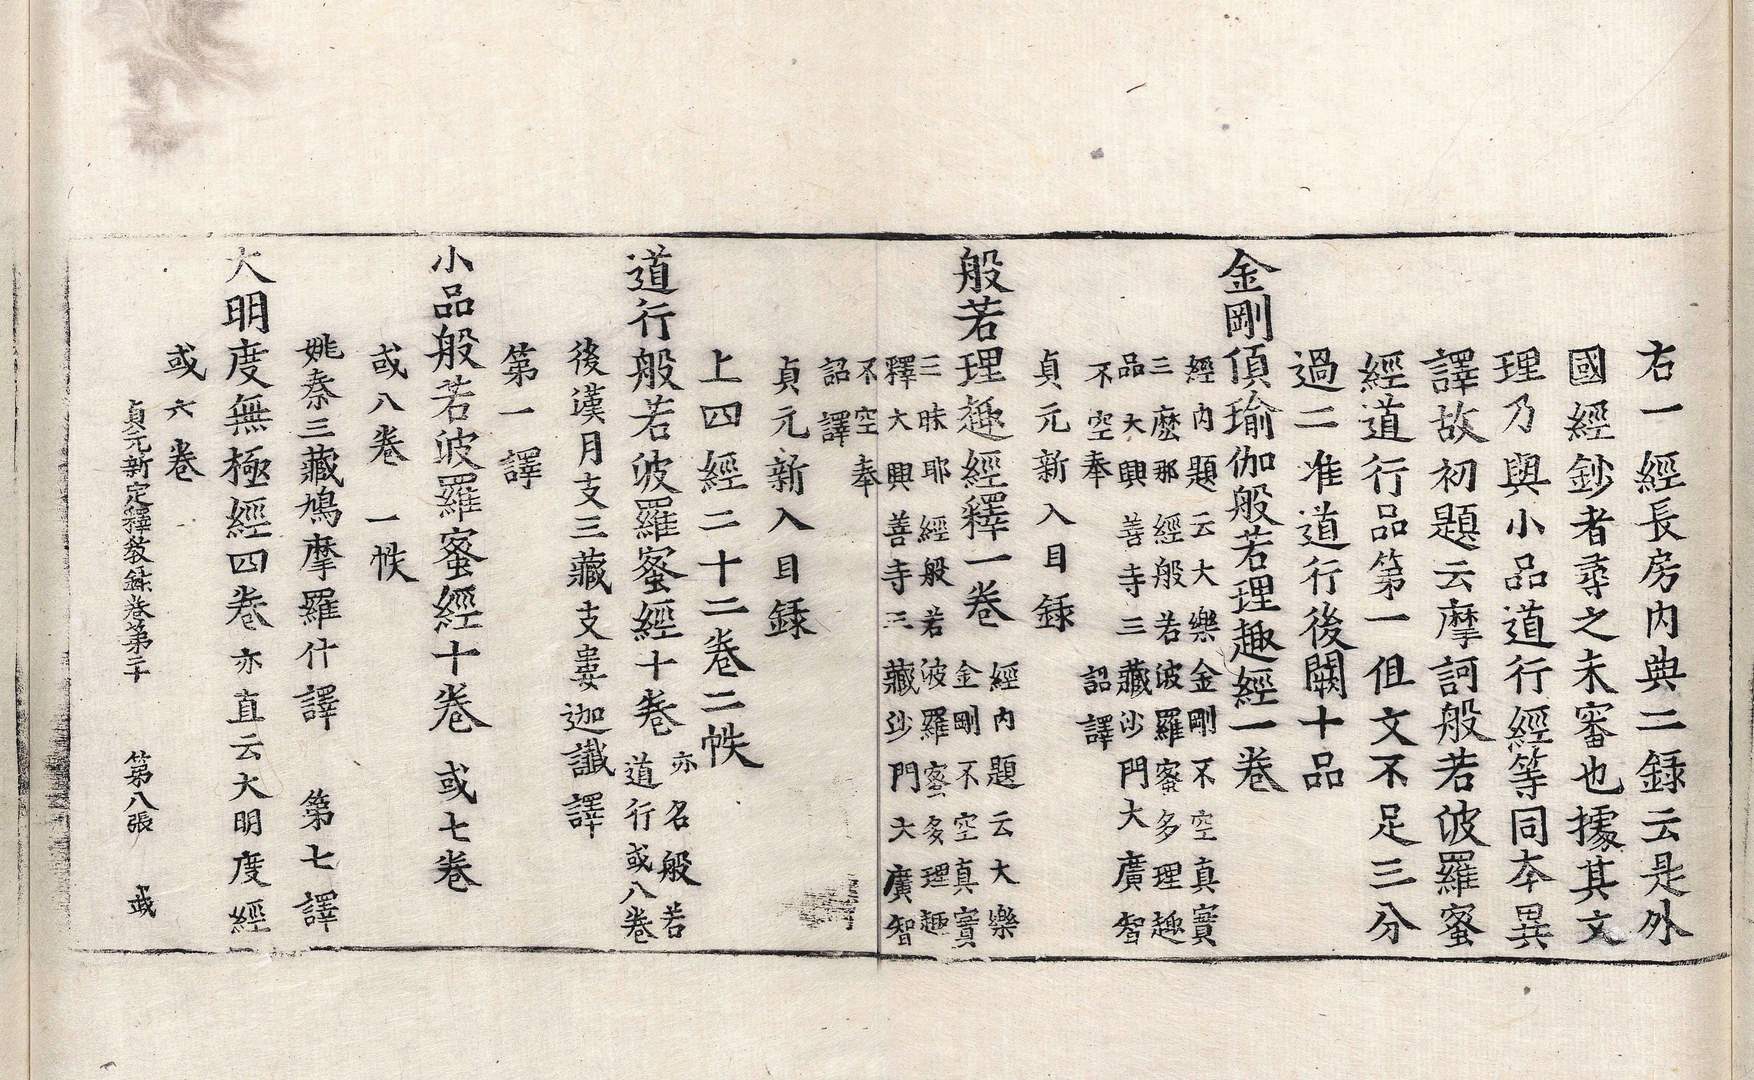 右一經長房內典二録云是外
國經鈔者尋之未審也據其文
理乃與小品道行經等同本異
譯故初題云摩訶般若波羅蜜
經道行品第一但文不足三分
過二准道行後闕十品
金剛頂瑜伽般若理趣經一卷
經內題云大樂金剛不空真實
三麽那經般若波羅蜜多理趣
品大興善寺三藏沙門大廣智
不空奉詔譯
貞元新入目録
般若理趣經釋一卷
經內題云大樂
金剛不空真實
三昧耶經般若波羅蜜多理趣
釋大興善寺三藏沙門大廣智
不空奉
詔譯
貞元新入目録
上四經二十二卷二帙
道行般若波羅蜜經十卷
亦名般若
道行或八卷
後漢月支三藏支婁迦讖譯
第一譯
小品般若波羅蜜經十卷 或七卷
或八卷一帙
姚秦三藏鳩摩羅什譯 第七譯
大明度無極經四卷 亦直云大明度經
或六卷
貞元新定釋教錄卷第二十 第八張